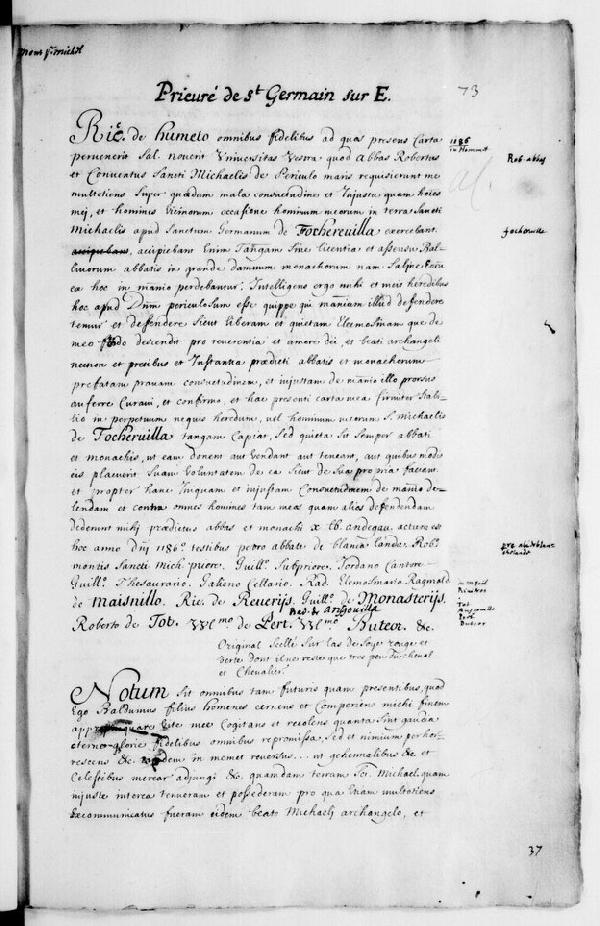 Mont St. Michel
Prieuré de St Germain sur E.
73
Ric. de humeto omnibus fidelibus ad quos presens Carta
pervenerit Sal. noverit Universitas Vestra quod Abbas Robertus
et Conventus Sancti Michaelis de Periculo maris requisierunt me
multotiens super quadam mala consuetudine et Injusta quam
mej, et hominis vicinorum occasione hominum meorum in terra Sancti
Michaelis apud Sanctum Germanum de Tochervilla exercebant.
accipiebant Enim Tangam Sine licentia et assensu Bal-
livorum abbatis in grande damnum monachorum nam Salinæ
ea hoc in manio perdebantur. Intelligens ergo mihi et meis heredibus
hoc apud Dnm periculosum esse quippe qui maniam illud defendere
tenui et defendere Sicut liberam et quietam Eleemosinam que de
meo descendit pro reverentia et amore dei, et beati archangeli
necnon et precibus et Instantia prædicti abbatis et monachorum
prefatam pravam consuetudinem, et injustam de manio illo prorsus
auferre Curavi, et confirmo, et hac presenti carta mea firmiter Stab-
lio in perpetuum nequis heredum, vel hominum meorum S. Michaelis
de Tochervilla tangam Capiat, Sed quieta Sit Semper abbati
et monachis, ut eam donent aut vendant aut teneant, aut quibus modis
eis placuerit Suam voluntatem de ea Sicut de Sua propria faciant.
et propter hanc Iniquam et injustam Consuetudinem de manio de-
lendam et contra omnes homines tam meos quam alios defendendam
dederunt mihj prædictus abbas et monachi x lb. andegav. actum est
hoc anno Dnj 1186° testibus petro abbate de blanca lande. Rob°
montis Sancti Mich. priore. Guill° Subpriore. Jordano Cantore
Guill° Thesaurario. Galieno Cellario. Rad. Elemosinario Raginald
de Maisnillo. Ric. de Reverijs. Guill° de Monasterijs.
Rad. de Argouvilla
Roberto de Tot. Will mo de Pert. Will mo Buteor. &c.
Original Scellé Sur las de Soye rouge et
verte dont il ne reste que tres peu Un Cheval
et Chevalier
Notum Sit omnibus tam futuris quam presentibus, quod
Ego Balduinus filius homenes cernens et Comperiens michi finem
appropinquare vite mee Cogitans et recolens quanta Sint gaudia
eterne glorie fidelibus omnibus repromissa, Sed et nimium perhor-
rescens &c. tandem in memet reversus... ut gehennalibus &c et
Celestibus merear adjungi &c. quamdam terram Sci. Michael. quam
injuste interea tenueram et possederam pro qua Etiam multotiens
Excommunicatus fueram eidem beato Michaeli archangelo, et
1186
in Hommet
Rob. abbas
Tocherville
pre abb. blanc
in
Tot
Argouville
Pert
Buteor
37